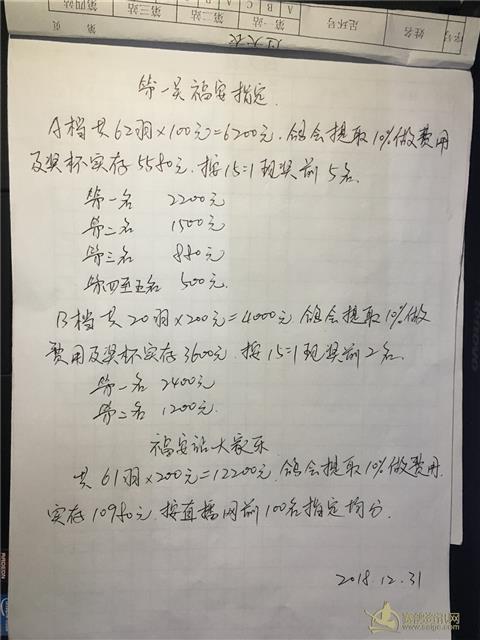 第四站
第三站
第二站
第一站
A B C
足环号
姓名
字号
第一关福安指定.
A档共62羽×100元=6200元.鸽会提取10%做费用
及奖杯实存5580元.按15=1现奖前5名.
第一名 2200元
第二名 1500元
第三名 880元
第四至五名 500元.
B档共20羽×200元=4000元 鸽会提取10%做
费用及奖杯实存3600元.按15=1现奖前2名.
第一名 2400元
第二名 1200元.
福安站大家乐
共61羽×200元=12200元.鸽会提取10%做费用.
实存10980元.按直播网前100名指定均分.
2018.12.31
赛鸽资讯网
www.saige.com